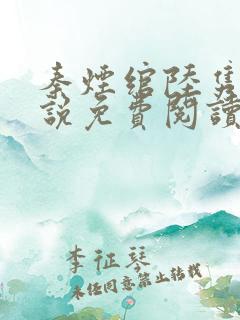 秦煙綰陸隽
說免費閱讀
李征琴
未经同意禁止转载